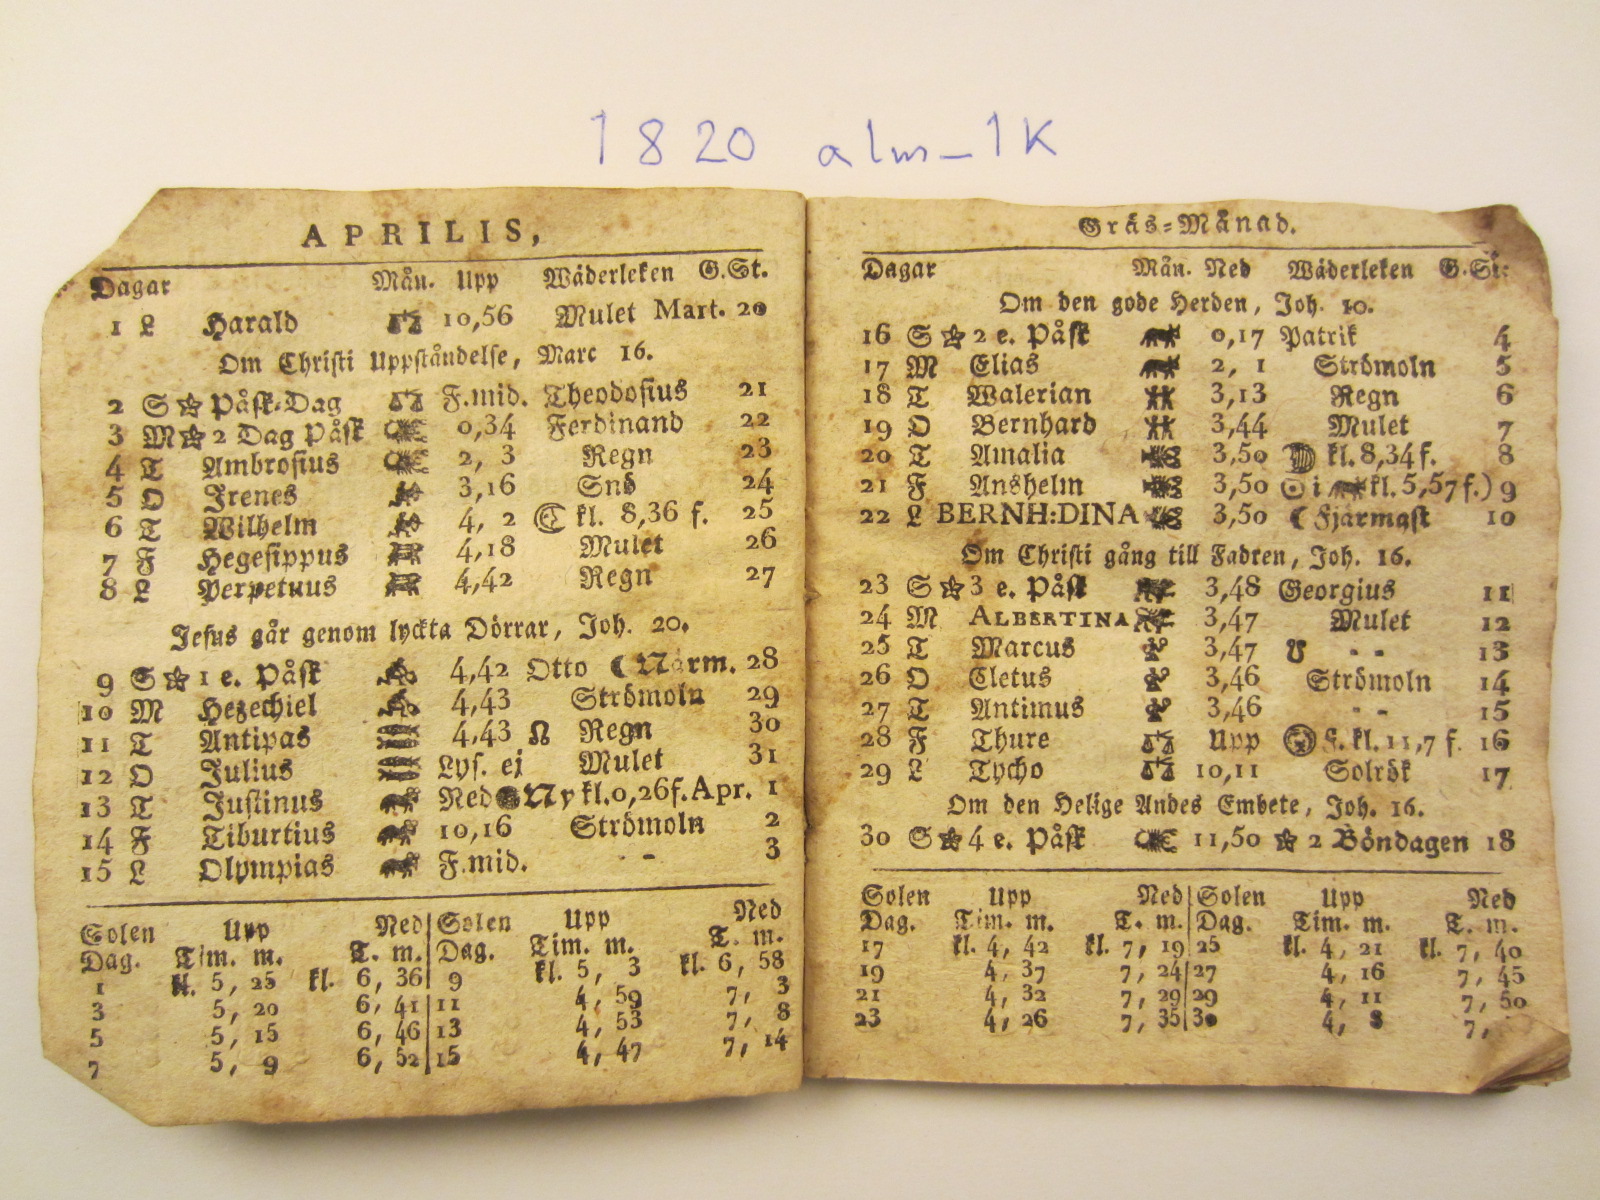 1820 alm_1K
APRILIS,
Dagar Mån. Upp Wäderleken G.St.
1 L Harald 10,56 Mulet Mart. 20
Om Christi Uppståndelse, Marc 16.
2 S Påsk-Dag F.mid. Theodosius 21
3 M 2 Dag Påsk 0,34 Ferdinand 22
4 T Ambrosius 2, 3 Regn 23
5 O Irenes 3,16 Snö 24
6 T Wilhelm 4, 2 kl. 8,36 f. 25
7 F Hegesippus 4,18 Mulet 26
8 L Perpetuus 4,42 Regn 27
Jesus går genom lyckta Dörrar, Joh. 20.
9 S 1 e. Påsk 4,42 Otto ☾ Närm. 28
10 M Hezechiel 4,43 Strömoln 29
11 T Antipas 4,43 ☊ Regn 30
12 O Julius Lys. ej Mulet 31
13 T Justinus Ned Ny kl.0,26f. Apr. 1
14 F Tiburtius 10,16 Strömoln 2
15 L Olympias F.mid. - 3
Solen Upp Ned Solen Upp Ned
Dag. Tim. m. T. m. Dag. Tim. m. T. m.
1 kl. 5, 25 kl. 6, 36 9 kl. 5, 3 kl. 6, 58
3 5, 20 6, 41 11 4, 59 7, 3
5 5, 15 6, 46 13 4, 53 7, 8
7 5, 9 6, 52 15 4, 47 7, 14
Gräs-Månad.
Dagar Mån. Ned Wäderleken G.St:
Om den gode Herden, Joh. 10.
16 S 2 e. Påsk 0,17 Patrik 4
17 M Elias 2, 1 Strömoln 5
18 T Walerian 3,13 Regn 6
19 O Bernhard 3,44 Mulet 7
20 T Amalia 3,50 kl. 8,34 f. 8
21 F Anshelm 3,50 ☉ i kl. 5,57 f.) 9
22 L BERNH:DINA 3,50 ☾ Fjärmast 10
Om Christi gång till Fadren, Joh. 16.
23 S 3 e. Påsk 3,48 Georgius 11
24 M ALBERTINA 3,47 Mulet 12
25 T Marcus 3,47 ☋ - - 13
26 O Cletus 3,46 Strömoln 14
27 T Antimus 3,46 - - 15
28 F Thure Upp F. kl. 11,7 f. 16
29 L Tycho 10,11 Solrök 17
Om den Helige Andes Embete, Joh. 16.
30 S 4 e. Påsk 11,50 2 Böndagen 18
Solen Upp Ned Solen Upp Ned
Dag. Tim. m. T. m. Dag. Tim. m. T. m.
17 kl. 4, 42 kl. 7, 19 25 kl. 4, 21 kl. 7, 40
19 4, 37 7, 24 27 4, 16 7, 45
21 4, 32 7, 29 29 4, 11 7, 50
23 4, 26 7, 35 30 4, 8 7,